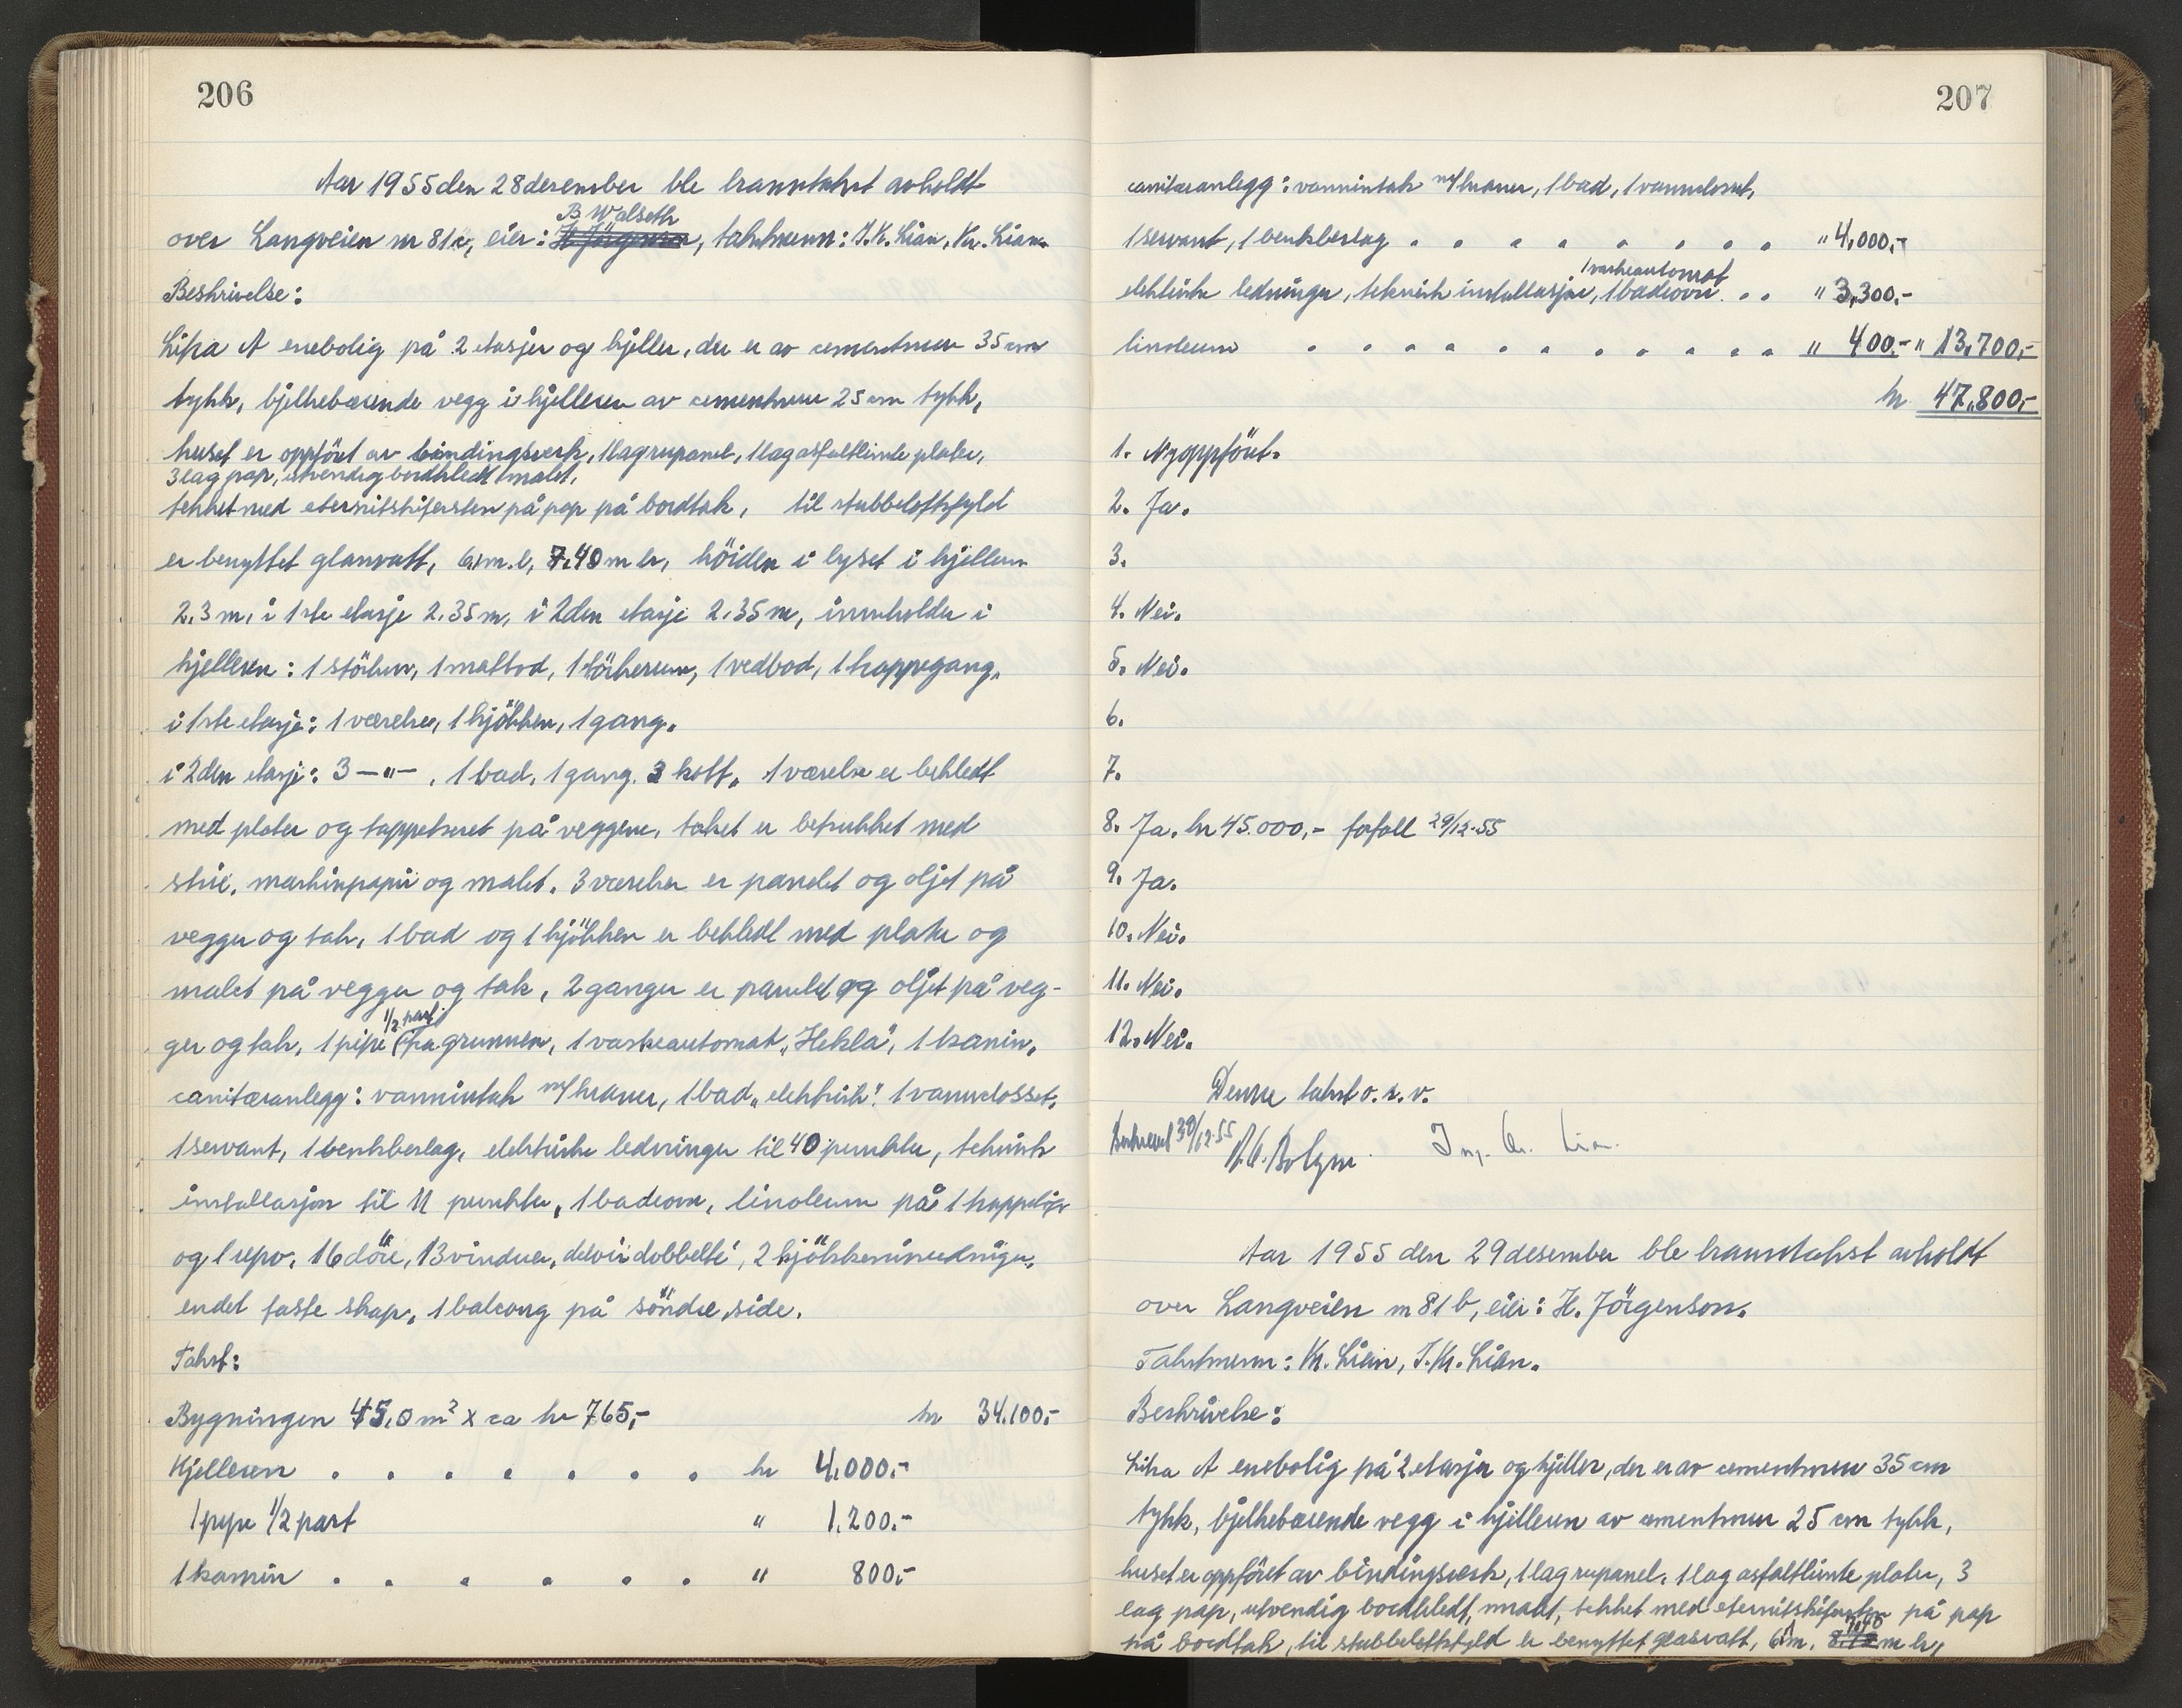 206
Aar 1955 den 28 desember ble branntakst avholdt
B Walseth
over Langveien nr 81c, eier: H Jörgenson, takstmenn: J. Kr. Lian, Kr. Lian.
Beskrivelse:
Litra A enebolig på 2 etasjer og kjeller, der er av cementmur 35 cm
tykk, bjelkebærende vegg i kjelleren av cementmur 25 cm tykk,
huset er oppfört av bindingsverk, 1 lag rupanel, 1 lag asfaltlimte plater,
3 lag pap, utvendig bordkledt, malet,
tekket med eternitskifersten på pap på bordtak, til stubbeloftsfyld
er benyttet glasvatt, 6,1 m. l, 7,40 m br, höiden i lyset i kjelleren
2,3 m, i 1ste etasje 2.35 m, i 2den etasje 2.35 m, inneholder i
kjelleren: 1 , 1 matbod, 1 törkerum, 1 vedbod, 1 trappegang,
i 1ste etasje: 1 værelse, 1 kjökken, 1 gang.
i 2den etasje: 3 —"— , 1 bad, 1 gang. 3 kott. 1 værelse er bekledt
med plater og tappetseret på veggene, taket er betrukket med
strie, maskinpapir og malet. 3 værelser er panelet og oljet på
vegger og tak, 1 bad og 1 kjökken er bekledt med plater og
malet på vegger og tak, 2 ganger er panelet og oljet på veg-
1/2 part
ger og tak, 1 pipe fra grunnen, 1 vaskeautomat "Hekla", 1 kamin.
canitæranlegg: vanninntak m/kraner, 1 bad "elektrisk". 1 vannclosset,
1 servant, 1 benkbeslag, elektriske ledninger til 40 punkter, teknisk
installasjon til 11 punkter, 1 badeovn, linoleum på 1 trappelöp
og 1 repo. 16 döre, 13 vinduer, delvis dobbelte, 2 kjökkeninnredninger,
endel faste skap, 1 balcong på söndre side.
Takst:
Bygningen 45,0 m² x ca kr 765,- kr 34.100,-
Kjelleren . . . . . . . kr 4.000.-
1 pipe 1/2 part " 1.200.-
1 kamin . . . . . . " 800.-
207
canitæranlegg: vanninntak m/kraner, 1 bad, 1 vanncloset,
1 servant, 1 benkbeslag . . . . . . . . " 4.000.-
1 vaskeautomat
elektriske ledninger, teknisk installasjon, 1 badeovn . . . " 3,300.-
linoleum . . . . . . . . . . " 400.- " 13.700,-
kr 47.800,-
1. Nyoppfört.
2. Ja.
3.
4. Nei.
5. Nei.
6.
7.
8. Ja. kr 45.000,- forfall 29/12-55
9. Ja.
10. Nei.
11. Nei.
12. Nei.
Denne takst o.s.v.
Beskrevet 30/12-55 Ing. Kr. Lian.
Aar 1955 den 29 desember ble branntakst avholdt
over Langveien nr 81 b, eier: H. Jörgenson.
Takstmenn: Kr. Lian, J. Kr. Lian.
Beskrivelse:
Litra A enebolig på 2 etasjer og kjeller, der er av cementmur 35 cm
tykk, bjelkebærende vegg i kjelleren av cementmur 25 cm tykk,
huset er oppföret av bindingsverk, 1 lag rupanel, 1 lag asfaltlimte plater, 3
lag pap, utvendig bordkledt, malet, tekket med eternitskifersten på pap
7,40
på bordtak, til stubbeloftsfyld er benyttet glasvatt, 6,1 m. m br,